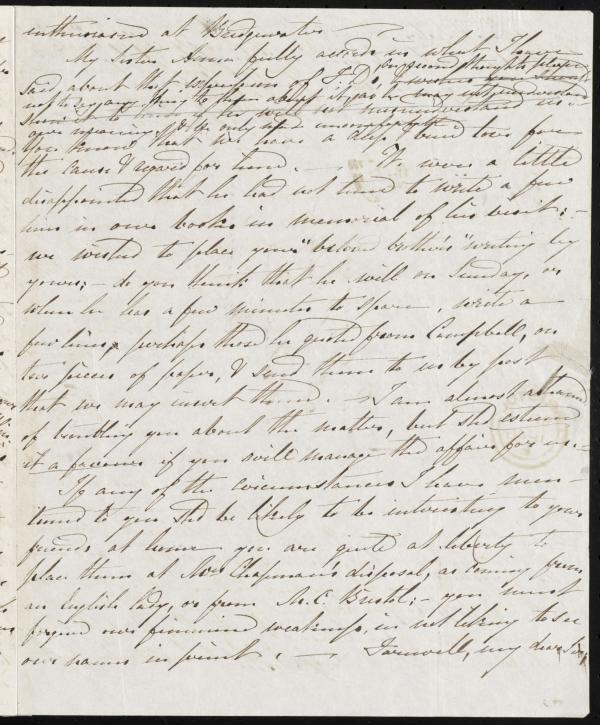 enthusiasm at Bridgewater —
My sister Anna fully accords in what I have
said, about that
not to say any thing to them about it, as he may not understand
our meaning, & be only made uncomfortable
You know that we have a deep & true love for
the cause & regard for him. — We were a little
disappointed that he had not time to write a few
lines in our books in memorial of his visit; —
we wished to place your "beloved brother's" writing by
yours; — do you think that he will on Sunday, or
when he has a few minutes to spare, write a
few lines, perhaps those he quoted from Campbell, on
two pieces of paper, & send them to us by post
that we may insert them. — I am almost ashamed
of troubling you about the matter, but shd esteem
it a favour if you will manage the affair for us. —
If any of the circumstances I have men-
tioned to you shd be likely to be interesting to your
friends at home you are quite at liberty to
place them at Mrs Chapman's disposal, as coming from
an English lady, or from M. C. Bristol; — you must
forgive our feminine weakness, in not liking to see
our names in print. — Farewell, my dear Sir,